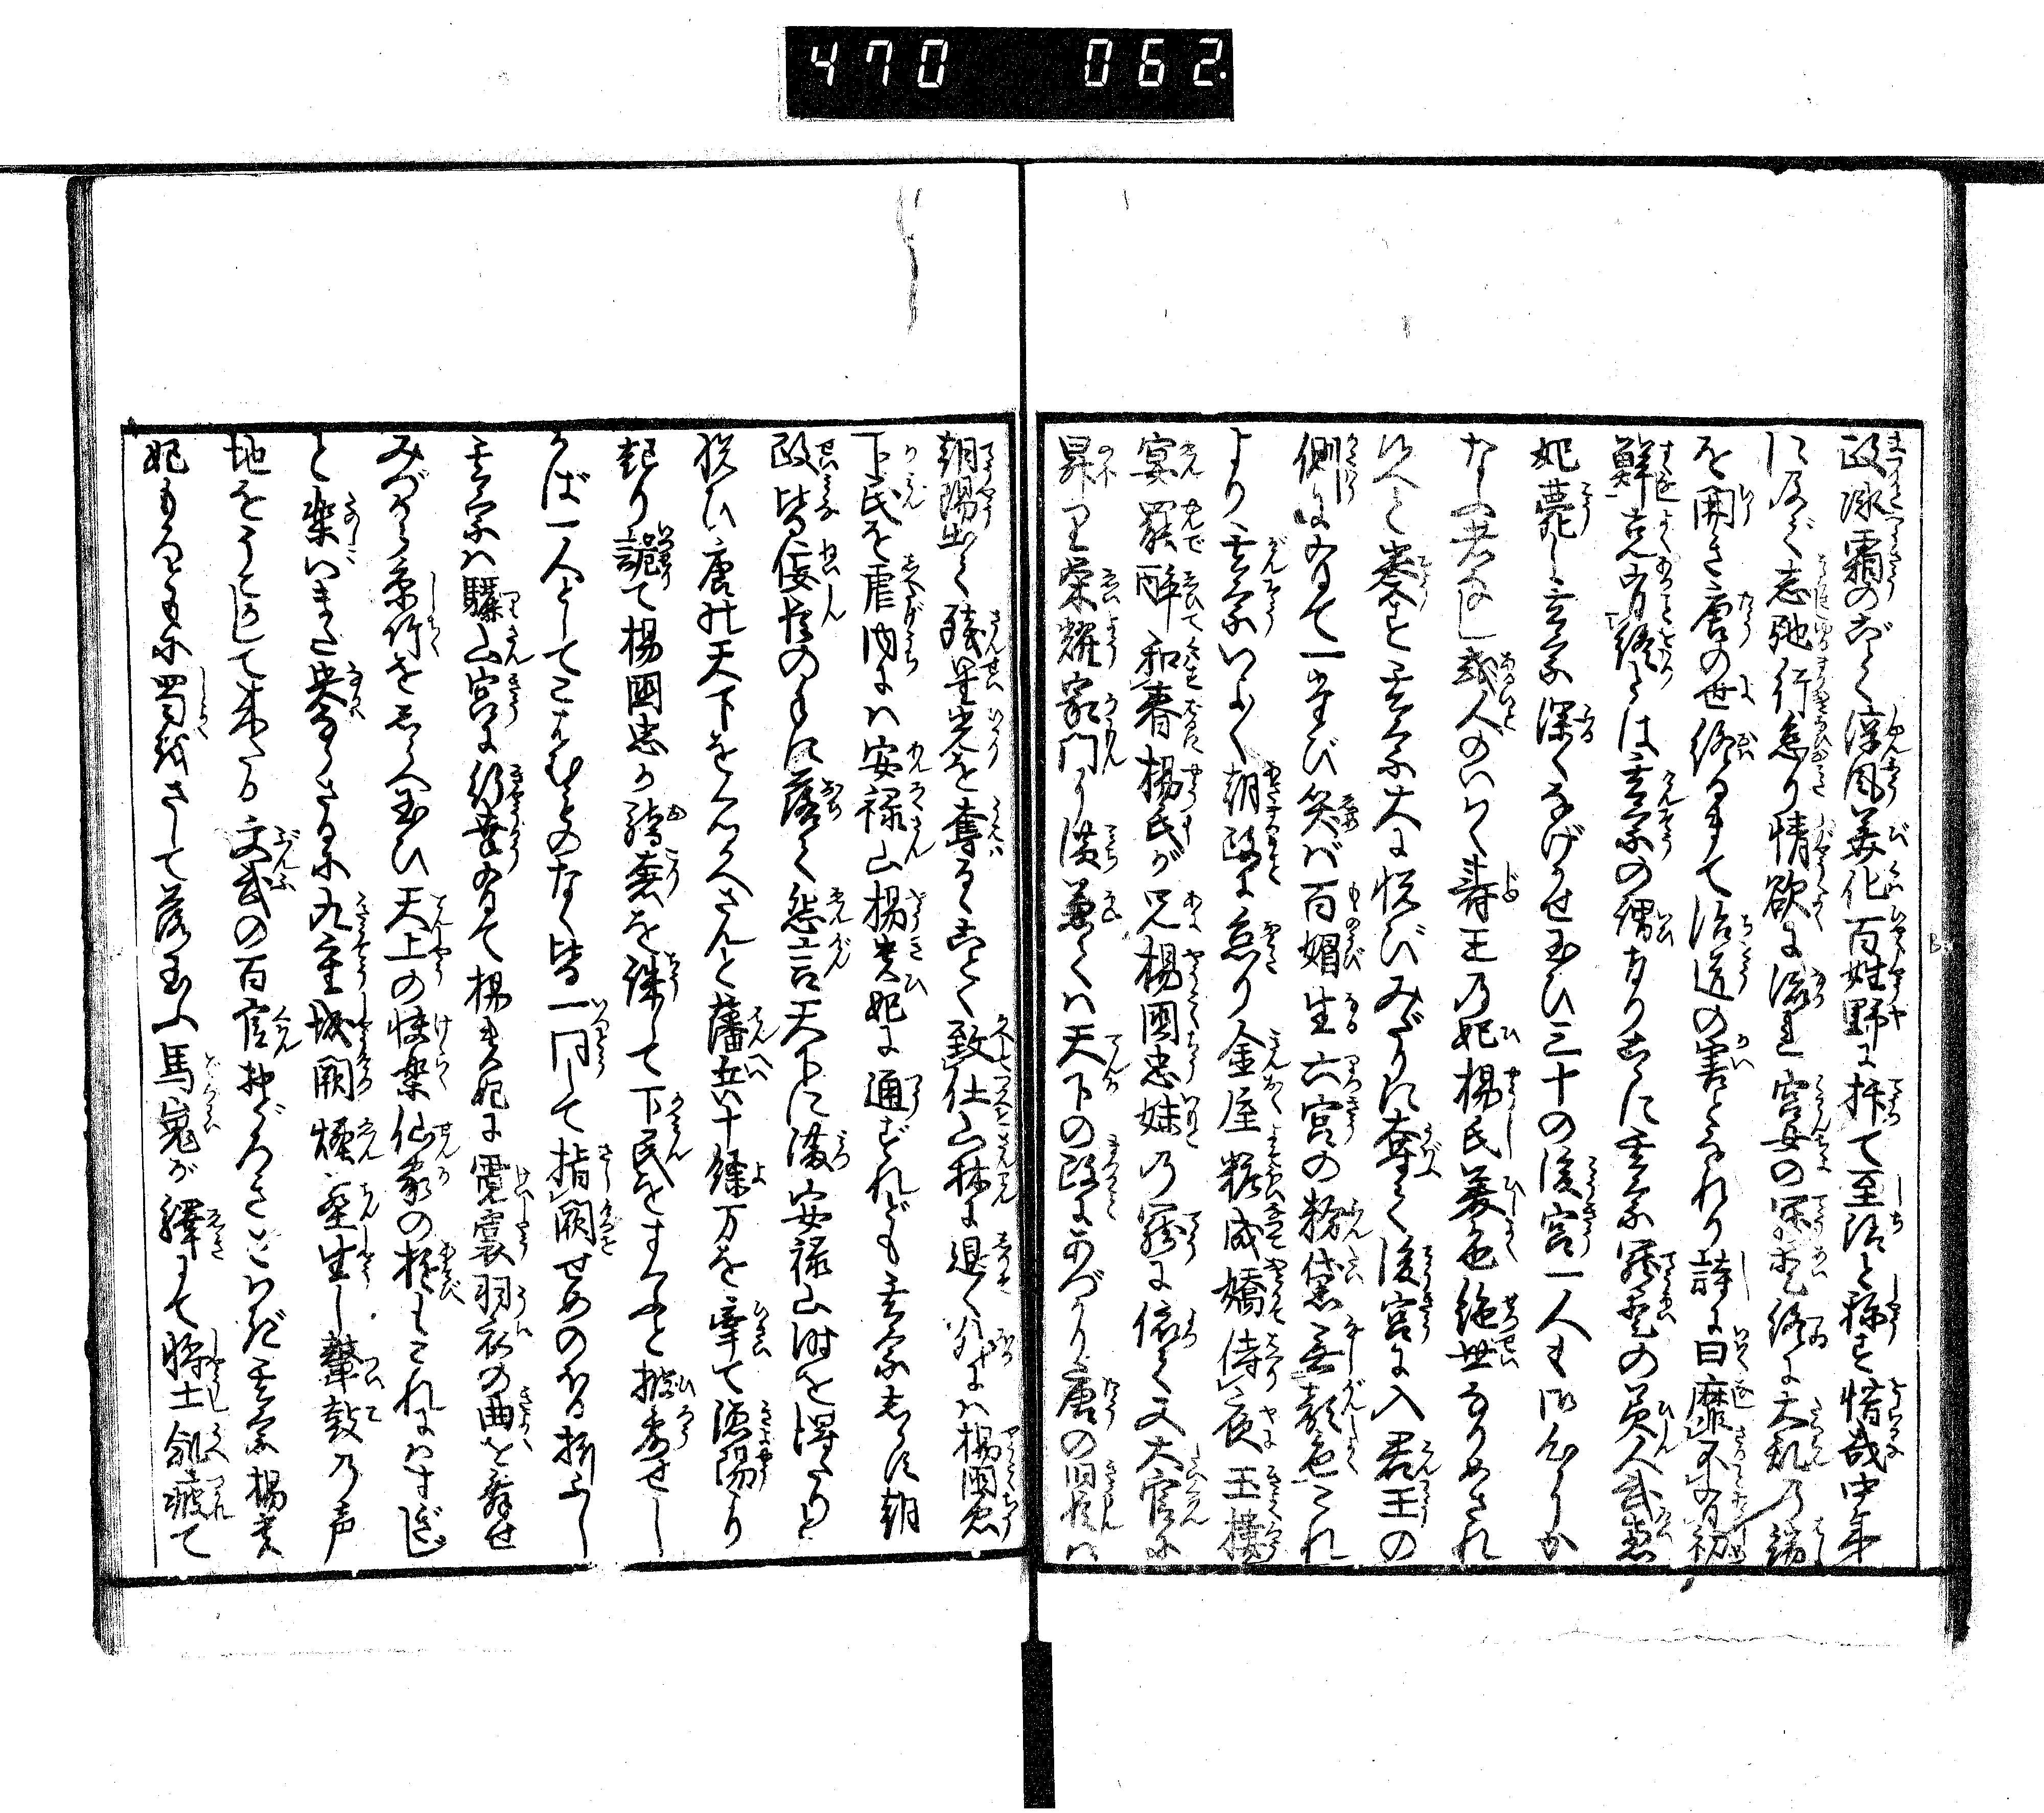 470 062.
政冰霜のごとく淳風美化百姓野に抃て至治と称ず惜哉中年
に及で志弛行怠り情欲に流れ宮女の寵愛終に大乱の端
を開き唐の世終るまで治道の害となれり詩に曰靡不有初
鮮克有終とは玄宗の謂なりこゝに玄宗寵愛の美人武恵
妃薨し玄宗深くなげかせ玉ひ三十の後宮一人も御心にか
なふ者なし或人のいはく寿王の妃楊氏美色絶世なりめされ
侭へと奏す玄宗大に悦びみだりに奪て後宮に入君王の
側にゐて一たび笑ば百媚生六宮の粉黛無顔色これ
より玄宗いよ〳〵朝政に怠り金屋粧成嬌侍夜玉楼
宴罷酔和春楊氏が兄楊国忠妹の寵に依て又大官に
昇り栄耀家門に満兼ては天下の政にあづかり唐の旧臣は
朝陽出て残星光を奪るゝごとく致仕山林に退く外には楊国忠
下民を虐内には安禄山楊貴妃に通ずれども玄宗しらに朝
政皆佞臣の手に落て怨言天下に満安禄山時を得たりと
悦ひ唐の天下をくつがへさんと藩兵十余万を率て漁陽より
起り詭て楊国忠が驕奢を誅して下民をすくふと披露せし
かば一人としてこばむものなく皆一同して指闕せめのぼる折ふし
玄宗は驪山宮に行幸ゐて楊貴妃に霓裳羽衣の曲を舞せ
みづから糸竹をしらべ玉ひ天上の快楽仙家の遊もこれにはすぎじ
と楽いまだ央ならさるに九重城闕烟塵生し鼙鼓の声
地をうごかして来たる文武の百官おどろきさはぎ玄宗楊貴
妃もろともに蜀をさして落玉ふ馬嵬が駅にて将士飢疲て